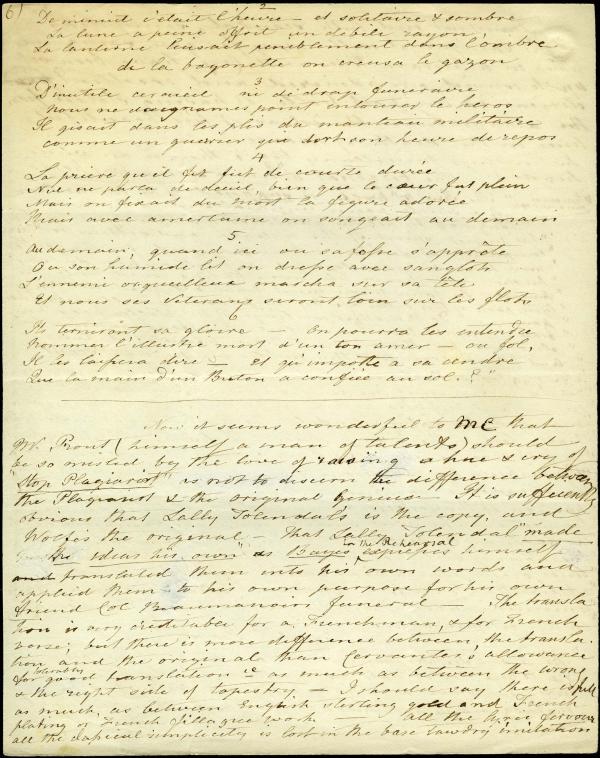 6)
2
De minuit c'était l'heure — et solitaire & sombre
La lune a peine offrit un debile rayon
La lanterne luisait peniblement dans l'ombre
de la bayonette on creusa le gazon
3
D'inutile cerceuil ni de drap funéraire
Nous ne daignames point entourer le heros
Il gisait dans les plis du manteau militaire
comme un guerrier qui dort son heure de repos
4
La priere qu'il fit fut de courte durée
Nul ne parla de deuil, bien que le cœur fut plein
Mais on fixait du mort la figure adorée
Mais avec amertume on songeait au demain
5
Au demain, quand ici ou sa fosse s'apprête
Ou son humide lit on dresse avec sanglots
L'ennemi orgueilleux marcha sur sa tête
Et nous ses Veterans seront loin sur les flots
6
Ils terniront sa gloire — on pourra les entendre
Nommer l'illustre mort d'un ton amer — ou fol,
Il les laissera dire — Et qu'importe a sa cendre
Que la main d'un Breton a confiée au sol.?"
Now it seems wonderful to ME that
Mr. Prout (himself a man of talents) should
be so misled by the love of raising a hue & cry of
"Stop Plagiarist" as not to discern the difference between
the Plagiarist & the original Genius. It is sufficiently
obvious that Lally Tolendal's is the copy, and
Wolfe's the original — that Lally Tolendal "made
the ideas his own" as Bayes in the Rehearsal expresses himself
translated them into his own words and
applied them to his own purpose for his own
friend Col Beaumanoirs funeral — The transla-
tion is very creditable for a Frenchman, & for French
verse; but there is more difference between, the transla-
tion and the original than Cervantes's allowance
for tolerably good translation as much as between the wrong
& the right side of tapestry — I should say there is full
as much, as between English sterling gold and French
plating or French fillagree work — all the fervour
all the simplicity is lost in the base tawdry imitation